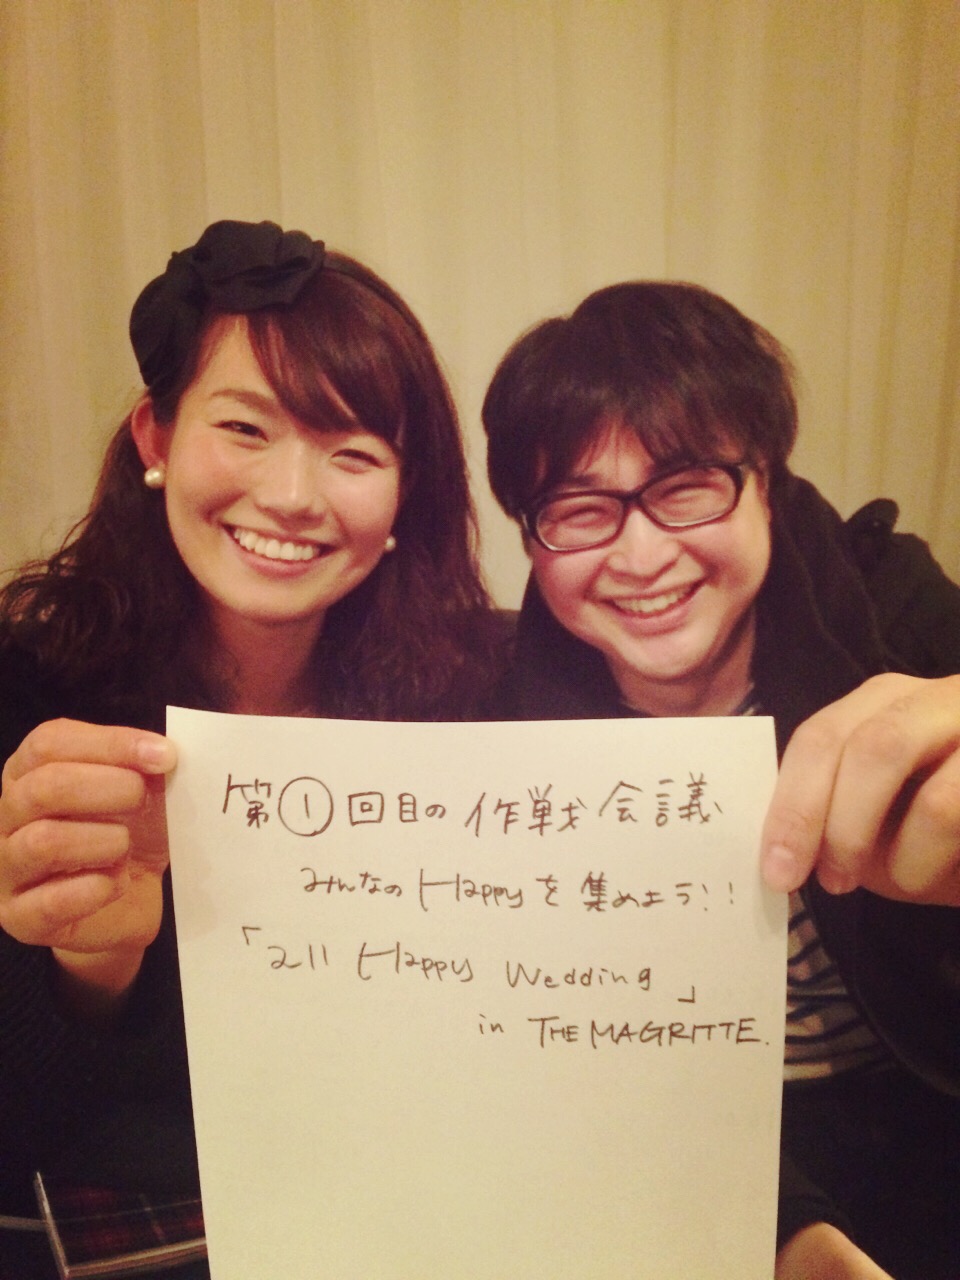 第①回目の作戦会議
みんなのHappyを集めよう!!
「all Happy Wedding」
in THE MAGRITTE.